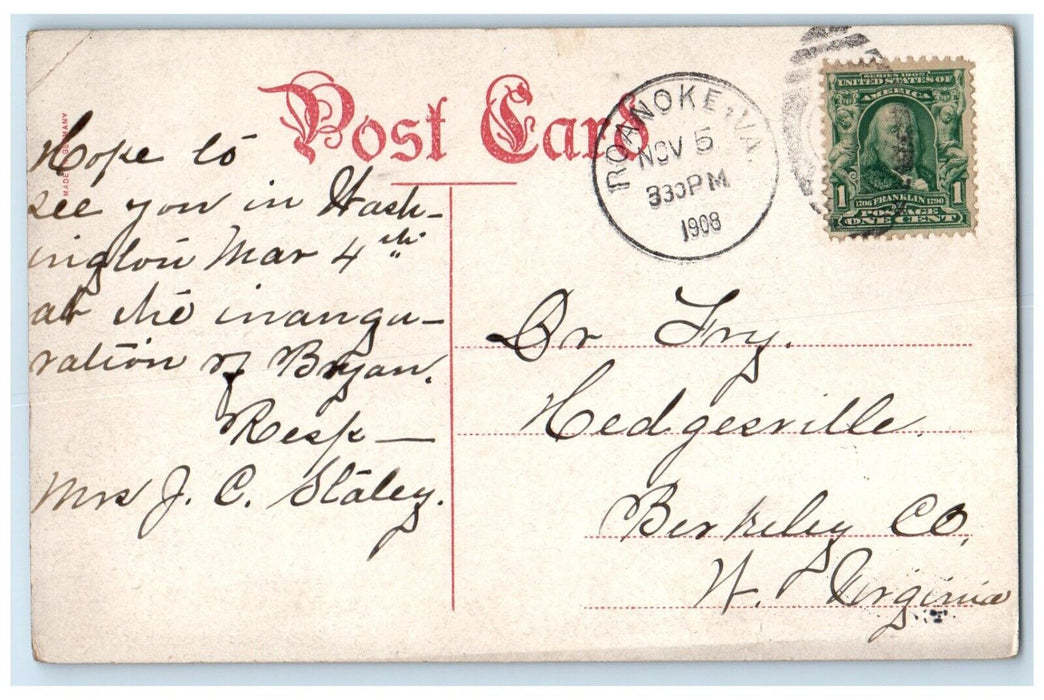 Post Card
MADE IN GERMANY
ROANOKE, VA.
NOV 5
330PM
1908
SERIES 1902
UNITED STATES OF
AMERICA
1 1
1706 FRANKLIN 1790
POSTAGE
ONE CENT
Hope to
see you in Wash-
ington Mar 4th
at the inaugu-
ration of Bryan.
Resp —
Mrs J. C. Staley.
Dr Fry.
Hedgesville.
Berkeley CO,
W. Virginia